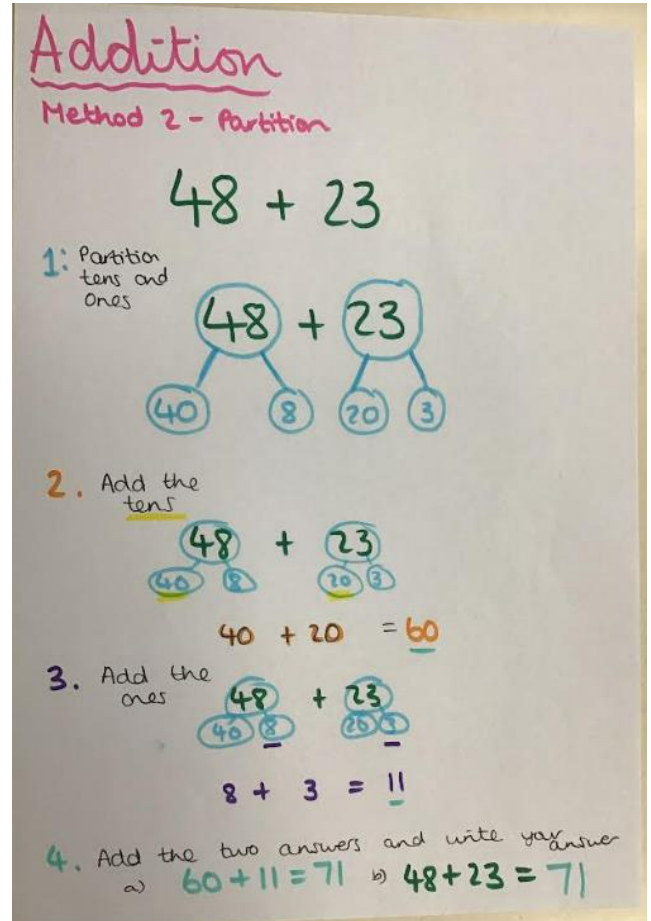 Addition
Method 2 - Partition
48 + 23
1: Partition
tens and
ones
48 + 23
40 8 20 3
2. Add the
tens
48 + 23
40 8 20 3
40 + 20 = 60
3. Add the
ones
48 + 23
40 8 20 3
8 + 3 = 11
4. Add the two answers and write your answer
a) 60 + 11 = 71 b) 48 + 23 = 71